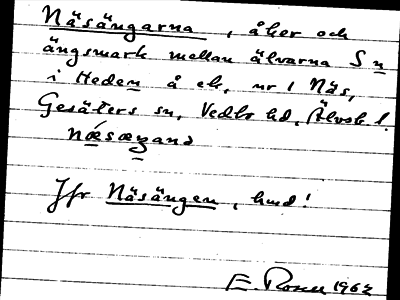 Näsängarna, åker och
ängsmark mellan älvarna S n
i Heden å ek. nr 1 Näs,
Gesäters sn, Vedbo hd, Älvsb. l.
Jfr Näsängen, hmd!
E Rosell 1962